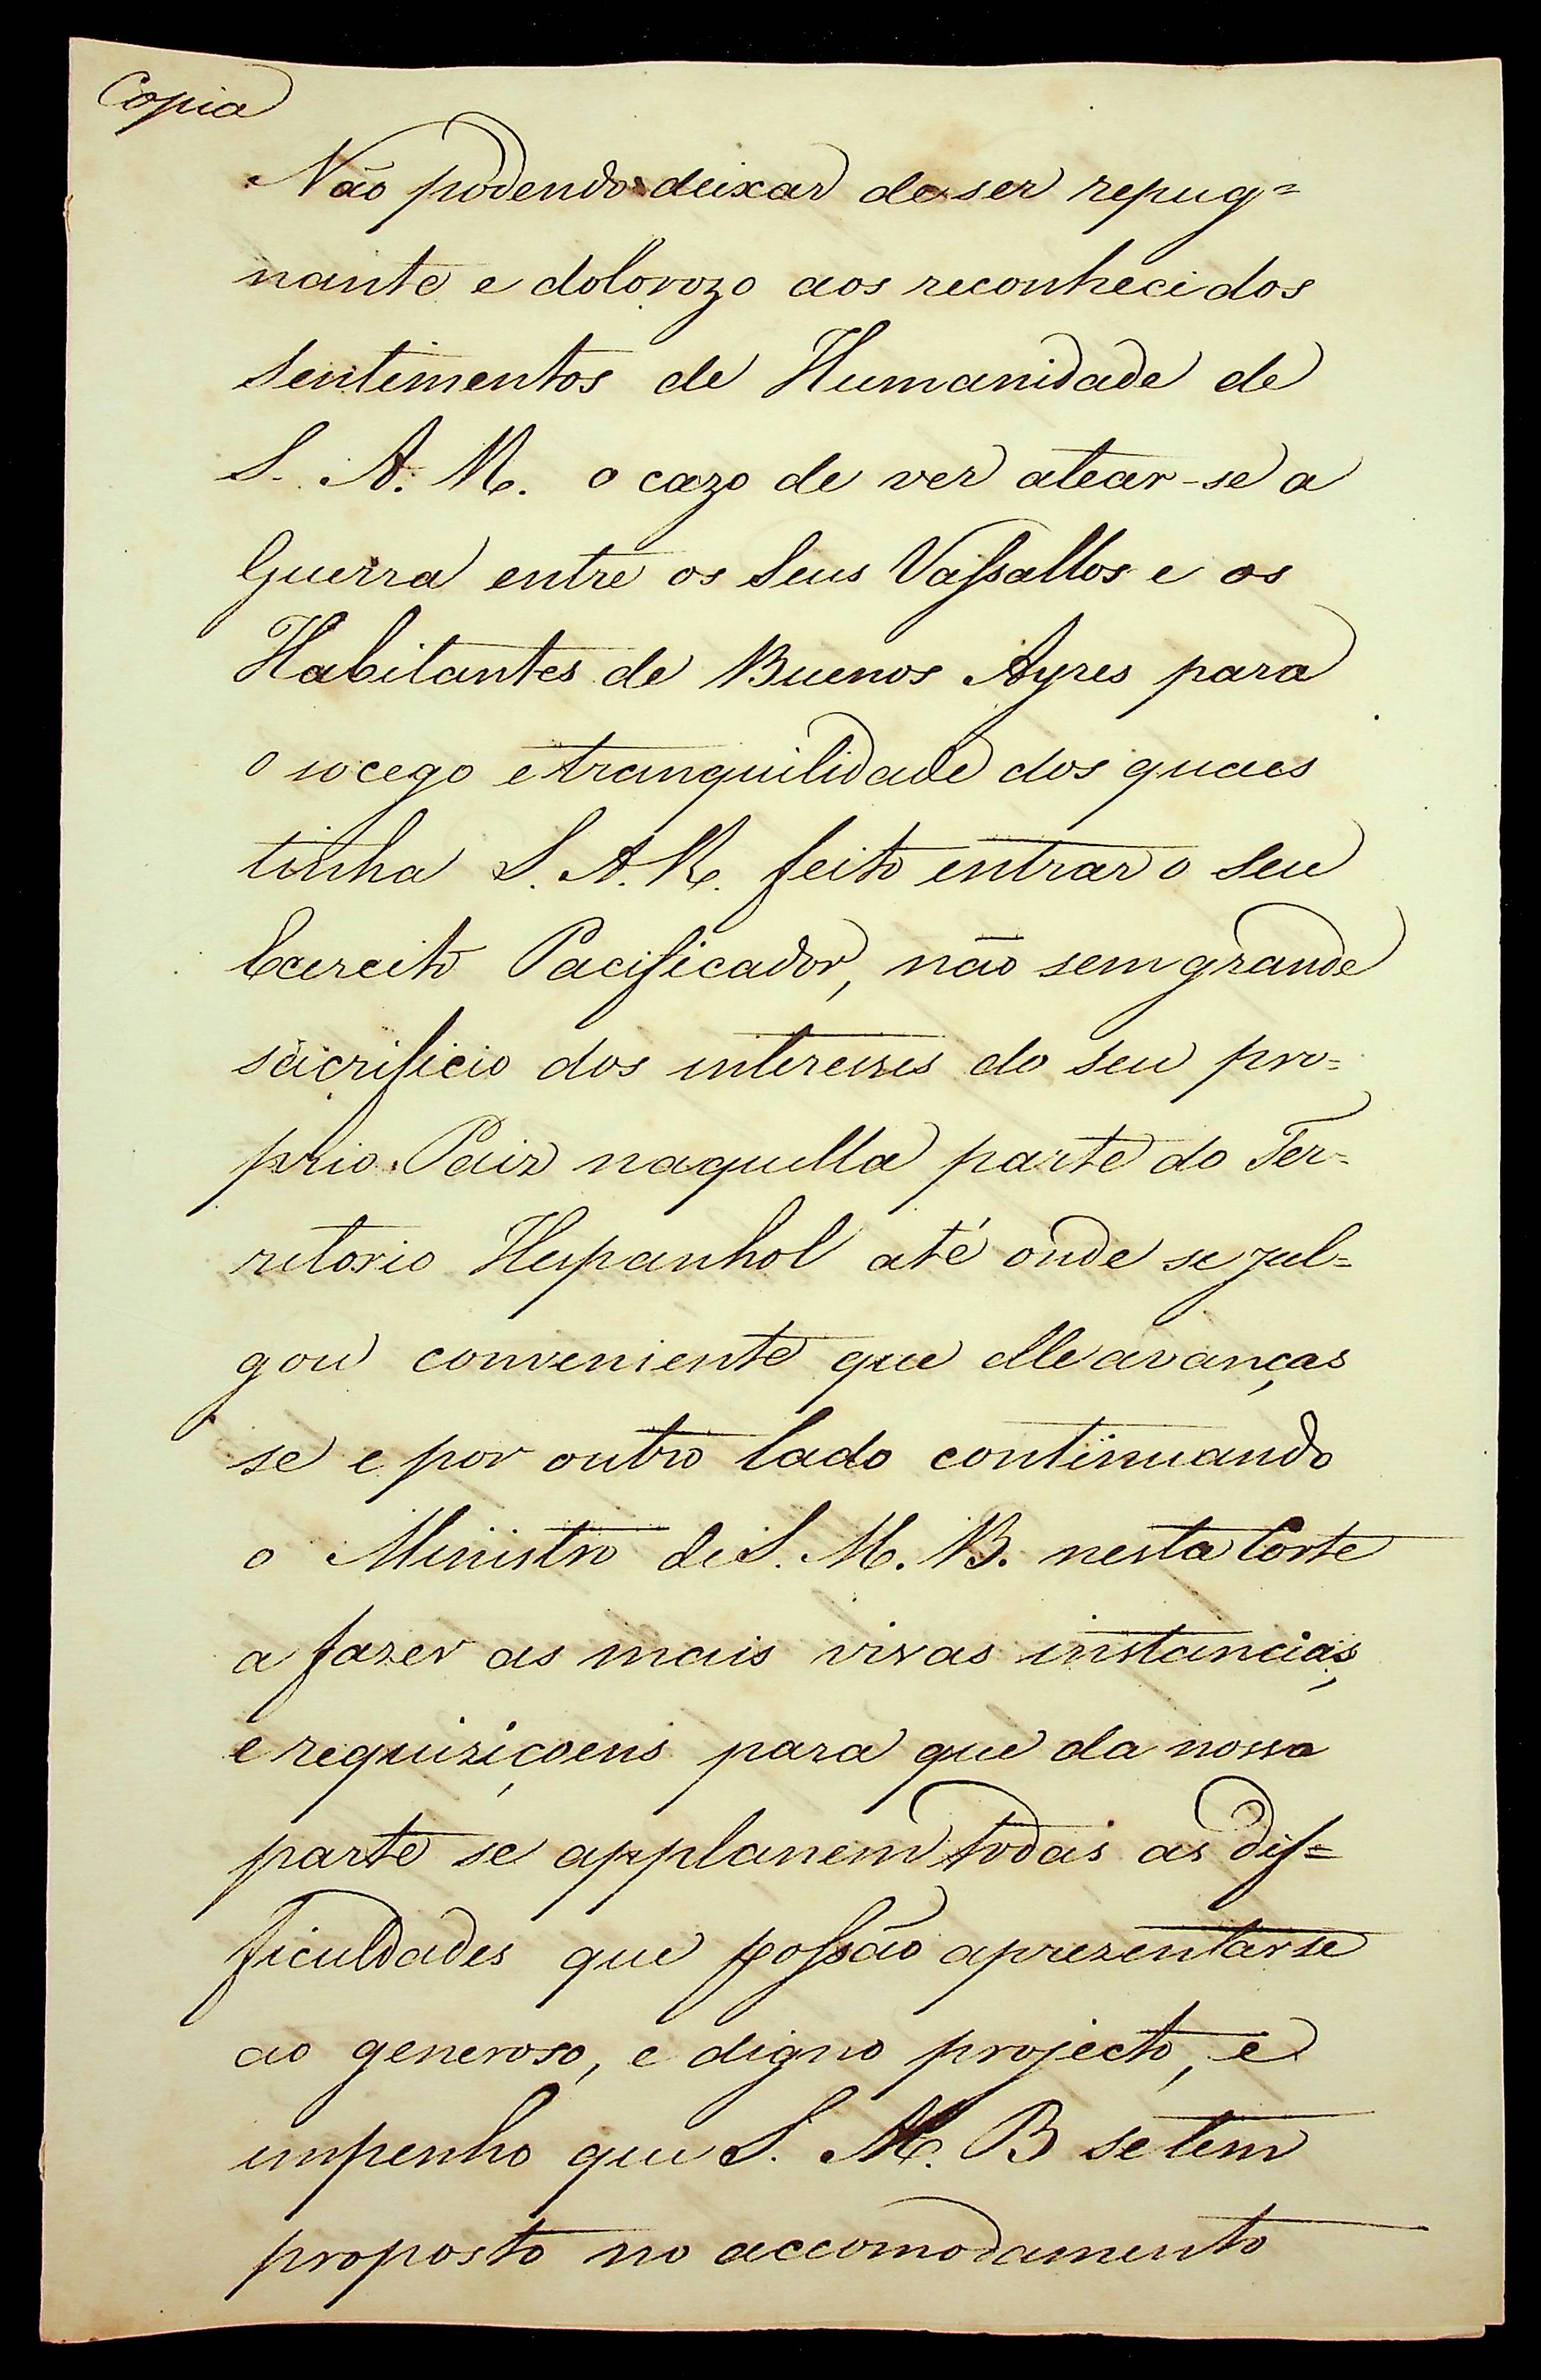 Copia
Não podendo deixar de ser repug=
nante e dolorozo aos reconhecidos
Sentimentos de Humanidade de
S. A. R. o cazo de ver atear-se a
Guerra entre os Seus Vassallos e os
Habitantes de Buenos Ayres para
o socego e tranquilidade dos quaes
tinha S. A. R. feito entrar o Seu
Exercito Pacificador, não sem grande
sacrificio dos interesses do seu pro=
prio Paiz naquella parte do Ter=
ritorio Hespanhol até onde se jul=
gou conveniente que elle avanças
se e por outro lado continuando
o Ministro de S. M. B. nesta Corte
a fazer as mais vivas instancias,
e requiziçoens para que da nossa
parte se applanem todas as dif=
ficuldades que possão aprezentarse
ao generoso, e digno projecto, e
empenho que S. M. B se tem
proposto no accomodamento